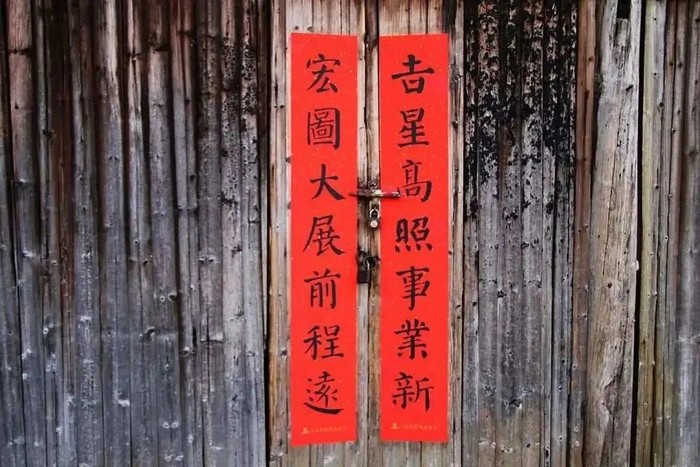 吉星高照事業新
宏圖大展前程遠